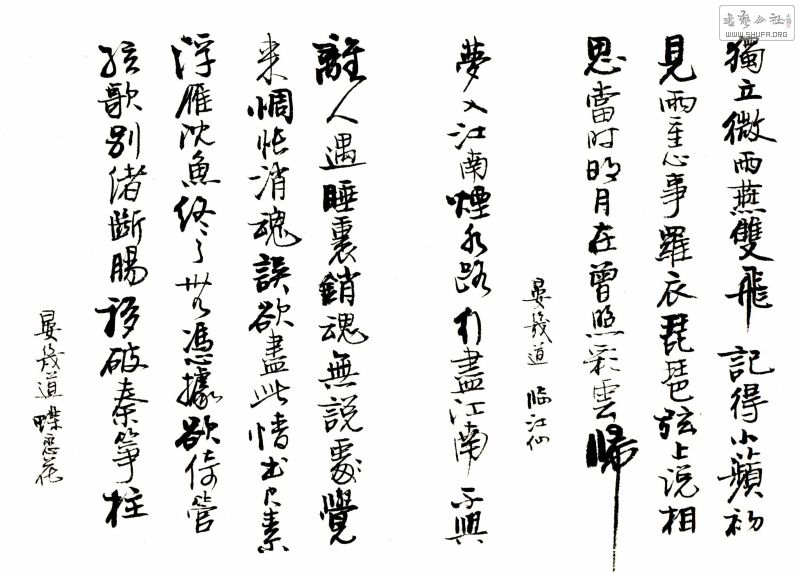 書藝公社
WWW.SHUFA.ORG
獨立微雨燕雙飛 記得小蘋初
見兩重心事羅衣琵琶弦上说相
思當时明月在曾照彩雲歸
晏幾道 临江仙
夢入江南煙水路行盡江南不與
離人遇睡裏銷魂無說處覺
来惆怅消魂誤欲盡此情書尺素
浮雁沈魚终了無憑據欲倚管
弦歌别绪斷腸移破秦箏柱
晏幾道 蝶恋花